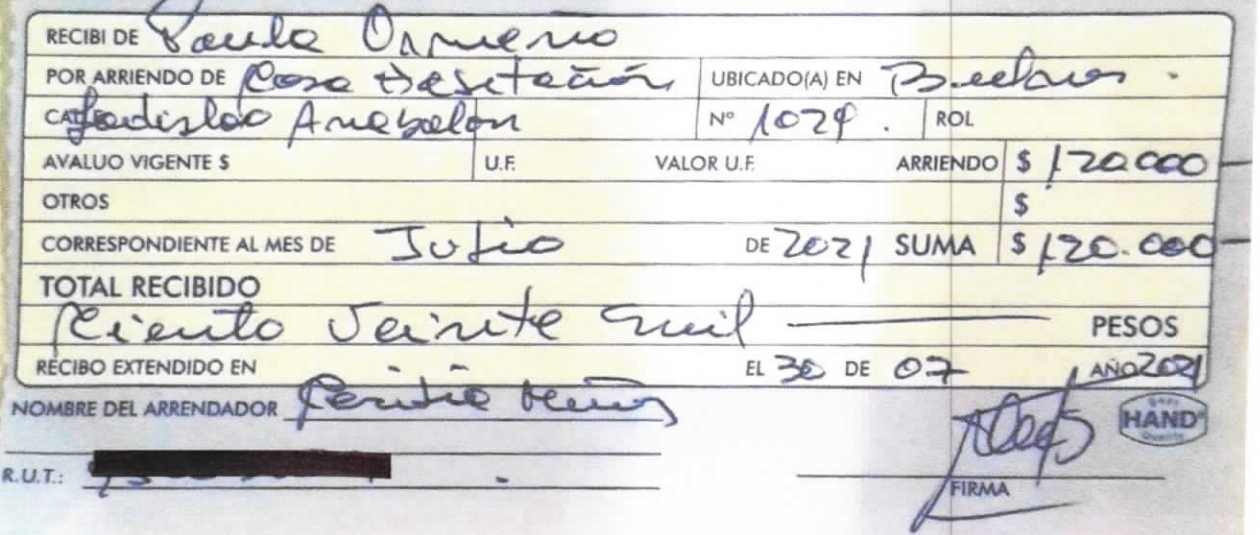 RECIBI DE Paula Ormeño
POR ARRIENDO DE Casa Habitación UBICADO(A) EN Buchos.
CALLE Ladislao Anabalon Nº 1029. ROL
AVALUO VIGENTE $ U.F. VALOR U.F. ARRIENDO $ 120.000
OTROS $
CORRESPONDIENTE AL MES DE Julio DE 2021 SUMA $ 120.000
TOTAL RECIBIDO
Ciento Veinte mil PESOS
RECIBO EXTENDIDO EN EL 30 DE 07 AÑO 2021
NOMBRE DEL ARRENDADOR
HAND
R.U.T.:
FIRMA